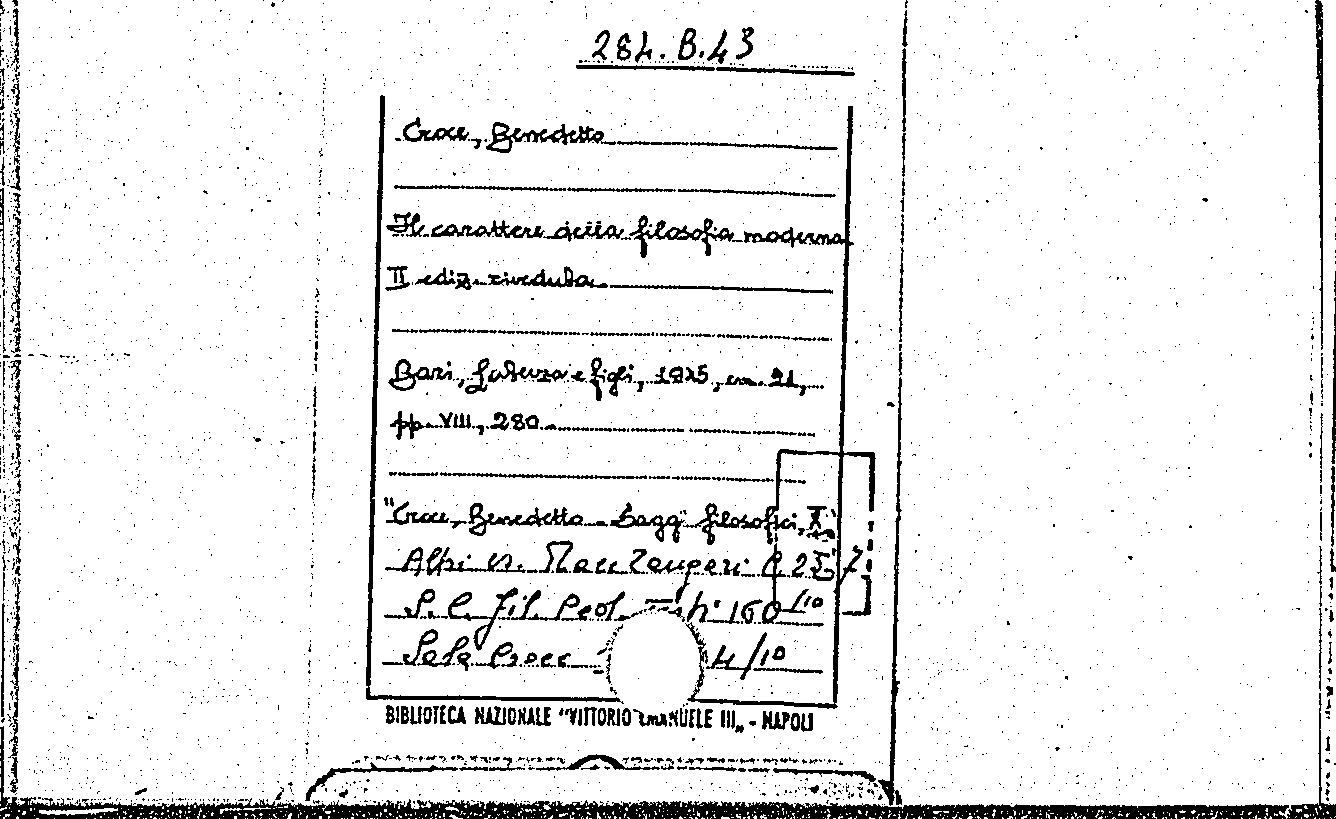 284.B.43
Croce, Benedetto
Il carattere della filosofia moderna
II ediz. riveduta.
Bari, Laterza e figli, 1945, cm. 21,
pp. VIII, 280.
"Croce, Benedetto - Saggi filosofici, X."
S. C. Fil. n. 160/10
Sala Croce 4/10
BIBLIOTECA NAZIONALE "VITTORIO EMANUELE III„ - NAPOLI